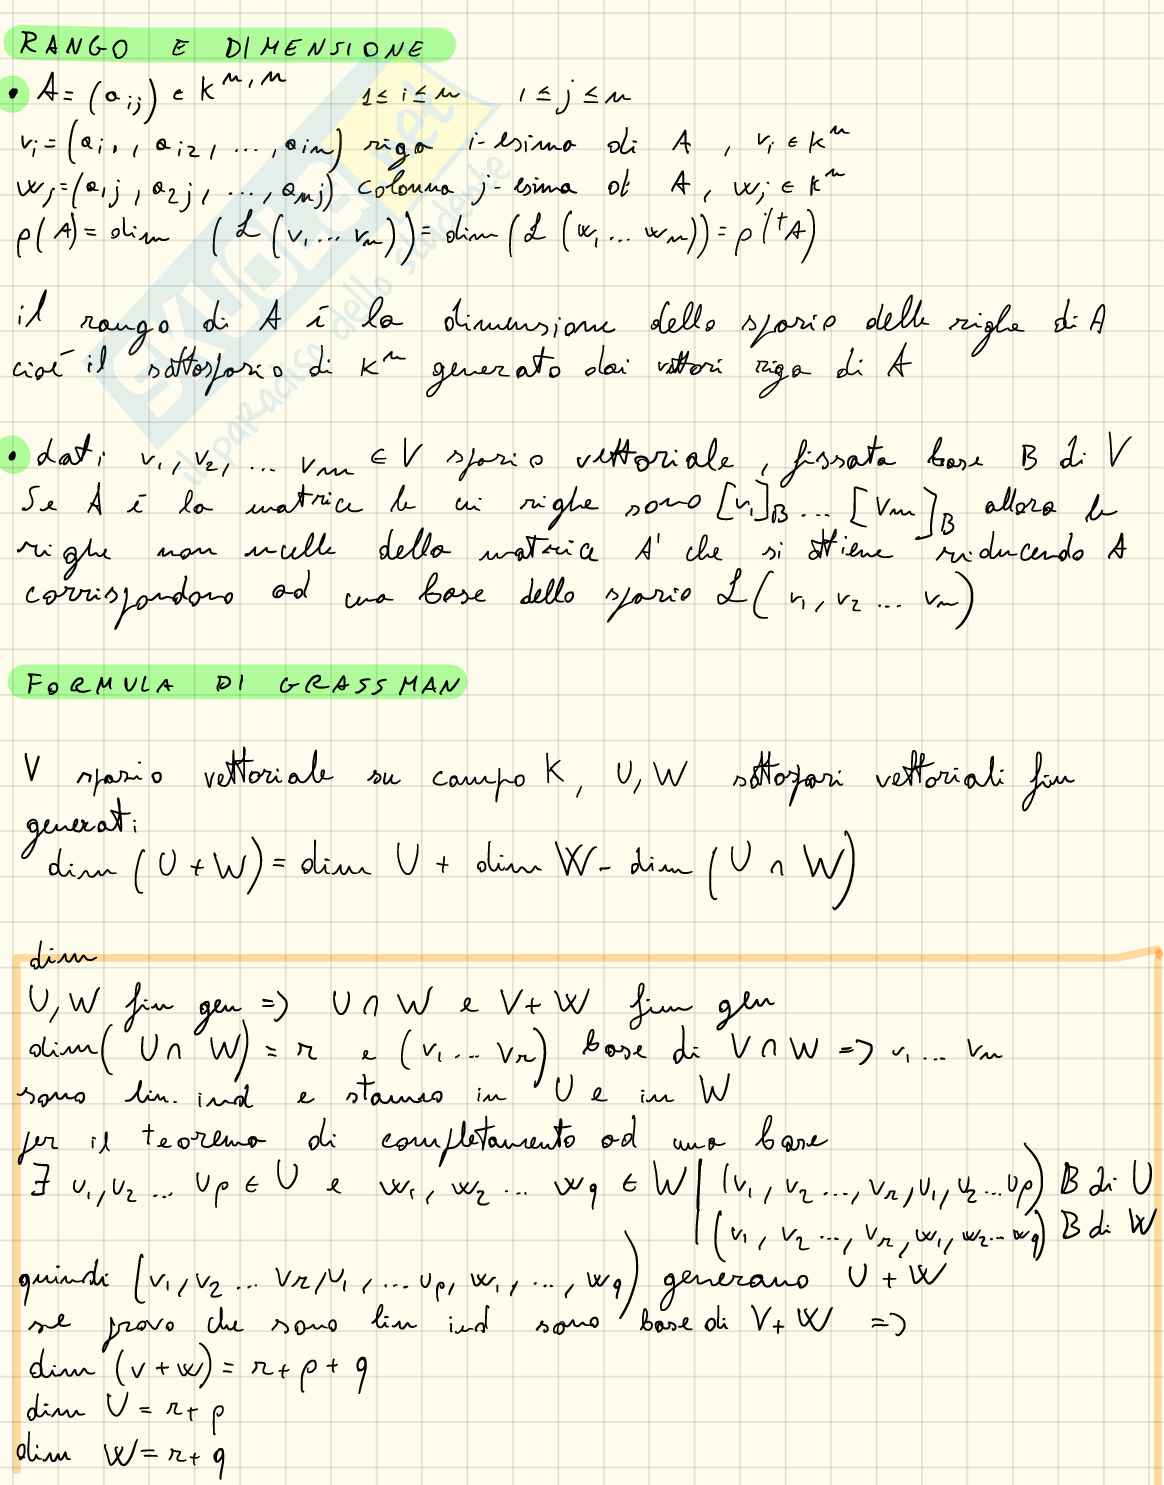 RANGO E DIMENSIONE
• A = (aij) ∈ K^m,n 1≤ i ≤ m 1 ≤ j ≤ n
vi = (ai1, ai2, ..., ain) riga i-esima di A, vi ∈ K^n
wj = (a1j, a2j, ..., amj) colonna j-esima di A, wj ∈ K^m
ρ(A) = dim (L(v1 ... vm)) = dim (L(w1 ... wn)) = ρ(tA)
il rango di A è la dimensione dello spazio delle righe di A
cioè il sottospazio di K^n generato dai vettori riga di A
• dati v1, v2, ... vm ∈ V spazio vettoriale, fissata base B di V
Se A è la matrice le cui righe sono [v1]B ... [vm]B allora le
righe non nulle della matrice A' che si ottiene riducendo A
corrispondono ad una base dello spazio L(v1, v2 ... vm)
FORMULA DI GRASSMAN
V spazio vettoriale su campo K, U, W sottospazi vettoriali fin
generati
dim (U + W) = dim U + dim W - dim (U ∩ W)
dim
U, W fin gen => U ∩ W e V + W fin gen
dim (U ∩ W) = r e (v1 ... vr) base di V ∩ W => v1 ... vn
sono lin. ind e stanno in U e in W
per il teorema di completamento ad una base
∃ u1, u2 ... up ∈ U e w1, w2 ... wq ∈ W | (v1, v2 ..., vr, u1, u2 ... up) B di U
(v1, v2 ..., vr, w1, w2 ... wq) B di W
quindi (v1, v2 ... vr, u1, ... up, w1, ..., wq) generano U + W
se provo che sono lin ind sono base di V + W =>
dim (v + w) = r + p + q
dim U = r + p
dim W = r + q
SKUOLA.net
il paradiso dello studente